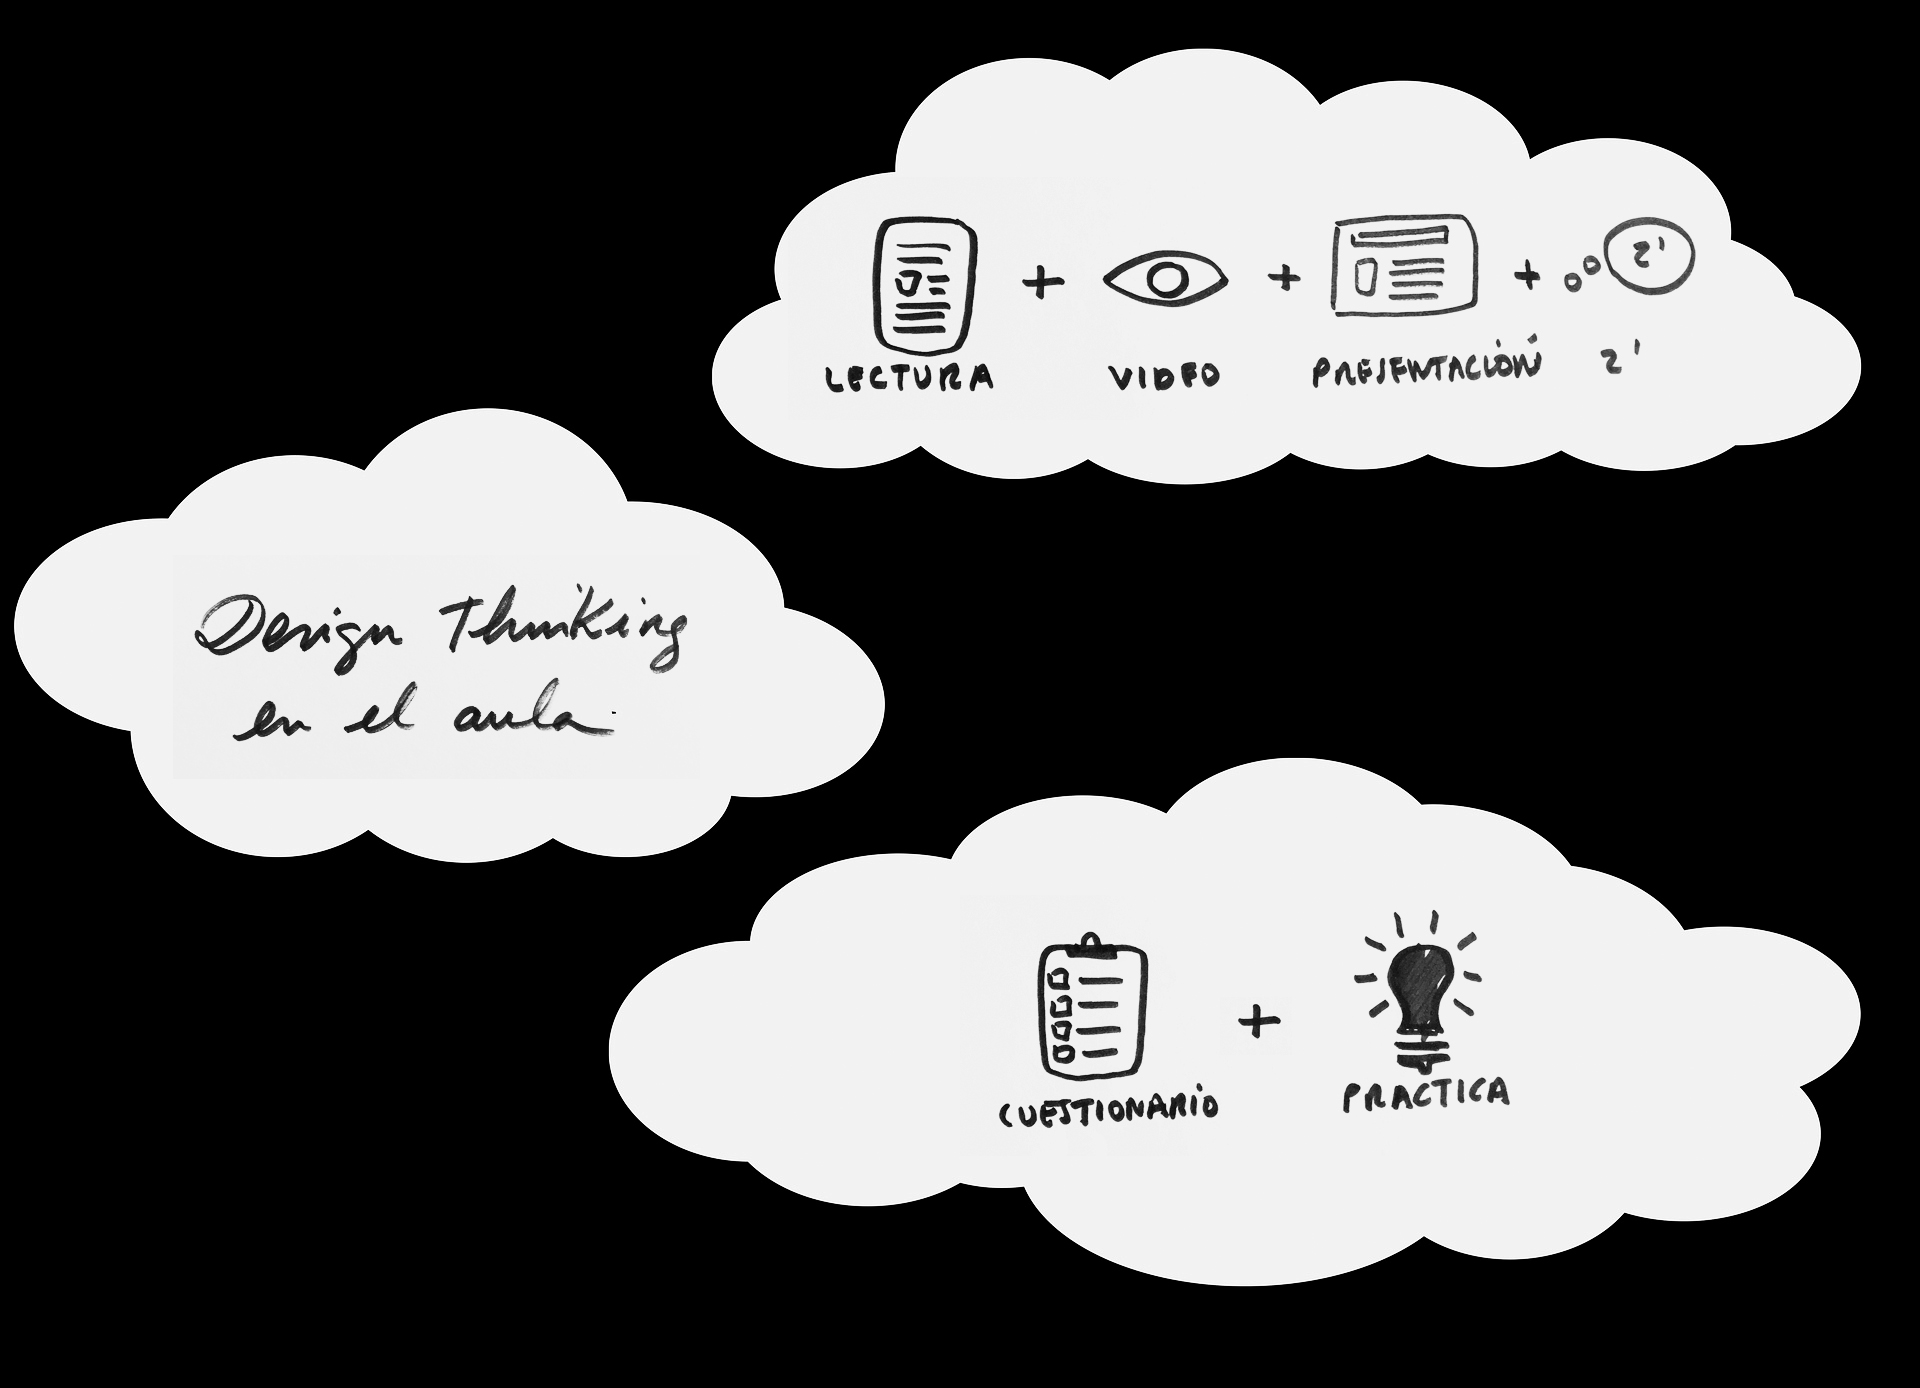 2'
LECTURA + VIDEO + PRESENTACIÓN + 2'
Design Thinking
en el aula
CUESTIONARIO + PRACTICA